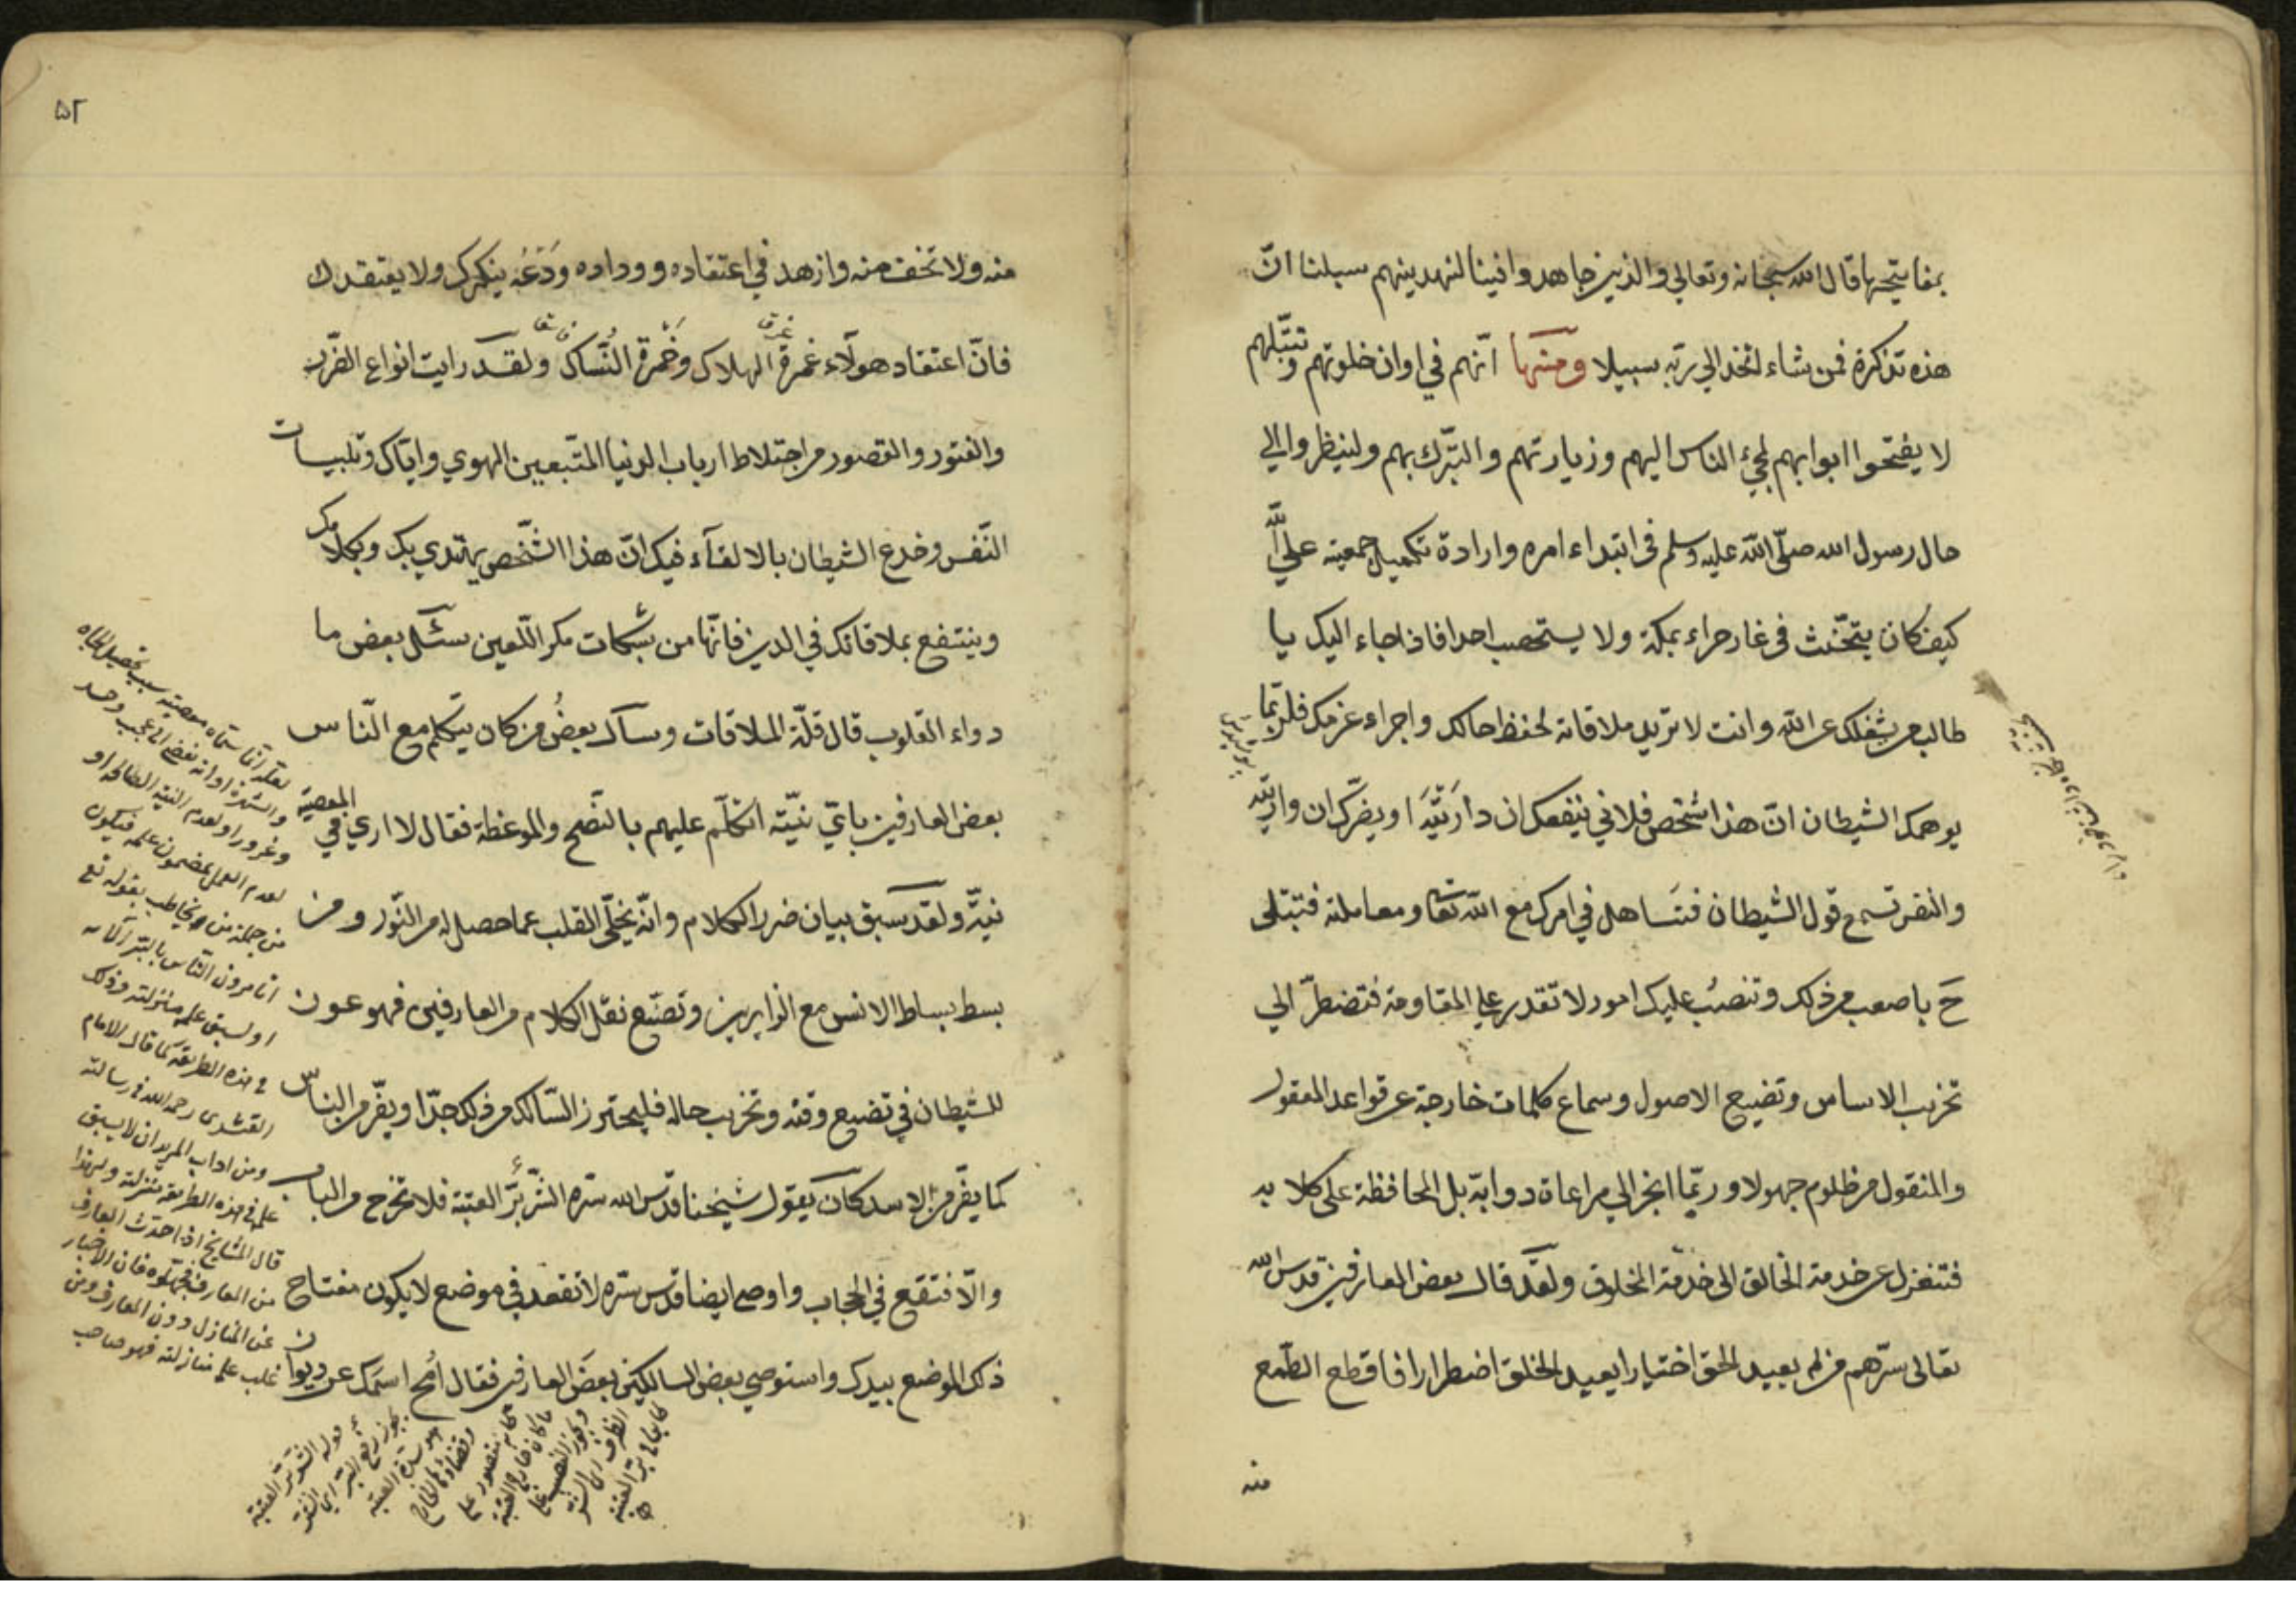 بمفاتيحها قال الله سبحانه وتعالي والذين جاهدوا فينا لنهدينهم سبلنا انّ
هذه تذكرة فمن شاء اتخذ الي ربّه سبيلا ومنها انّهم في اوان خلوتهم وتبتّلهم
لا يفتحوا ابوابهم لمجئ الناس اليهم وزيارتهم والتبّرك بهم ولينظروا الي
حال رسول الله صلّي الله عليه وسلم في ابتداء امره وارادة تكميل جمعيته علي الله
كيف كان يتحنّث في غار حراء بمكة ولا يستصحب احدا فاذا جاء اليك يا
طالب من يشغلك عن الله وانت لا تريد ملاقاته لحفظ حالك واجراء عزمك فلربّما
يوهمك الشيطان انّ هذا الشخص فلاني ينفعك ان داريته او يضرّك ان واريته
والنفس تسمع قول الشيطان فتساهل في امرك مع الله تعا ومعاملته فتبتلي
ح باصعب من ذلك وتنصبّ عليك امور لا تقدر علي المقاومة فتضطرّ الي
تخريب الاساس وتضييع الاصول وسماع كلمات خارجة عن قواعد المعقول
والمنقول من ظلوم جهول وربّما انجر الي مراعاة دوابّه بل المحافظة علي كلابه
فتنعزل عن خدمة الخالق الي خدمة المخلوق ولقد قال بعض العارفين قدس الله
تعالي سرّهم من لم يعبد الحق اختيارا يعبد الخلق اضطرارا فاقطع الطّمع
منه
۵۲
منه ولا تخف منه وازهد في اعتقاده ووداده ودَعْه ينكرك ولا يعتقدك
فانّ اعتقاد هولاء غمرة الهلاك وخمرة النّساك ولقد رايت انواع الضّرر
والفتور والقصور من اختلاط ارباب الدنيا المتّبعين الهوي وايّاك وتلبيسات
النّفس وخدع الشيطان بالالقاء فيك انّ هذا الشّخص يهتدي بك وبكلامك
وينتفع بملاقاتك في الدين فانّها من شبكات مكر اللّعين سئل بعض ما
دواء القلوب قال قلّة الملاقات وسأل بعضُ من كان يتكلم مع النّاس
بعض العارفين بايّ نيّة اتكلّم عليهم بالنّصح والموعظة فقال لا اري في المعصية
نيّة ولقد سبق بيان ضرر الكلام وانّه يخلّي القلب عما حصل له من النّور ومن
بسط بساط الانس مع الزايرين وتصنّع نقل الكلام من العارفين فهو عون
للشيطان في تضييع وقته وتخريب حاله فليحترز السّالك من ذلك جدّا ويفرّ من الناس
كما يفرّ من الاسد كان يقول شيخنا قدّس الله سرّه الشّر برّ العتبة فلا تخرج من الباب
والّا فتقع في الحجاب واوصي ايضا قدس سرّه لا تقعد في موضع لا يكون مفتاح
ذلك الموضع بيدك واستوصي بعض السالكين بعض العارفين فقال امُح اسمك عن ديوان
لعلّه انّما سمّاه معصية بسبب تحصيل الجاه
لعدم العمل بمضمون علمه فيكون
من جملة من يخاطب بقوله تع
اتامرون النّاس بالبّر الآية
او لسبق علمه منزلته وذلك
في هذه الطريقة كما قال الامام
القشيري رحمه الله في رسالته
ومن اداب المريد ان لا يسبق
علمه في هذه الطريقة منزلته ولهذا
قال المشايخ اذا حدّث العارف
من المعارف فجهّلوه فان الاخبار
عن المنازل دون المعارف ومن
غلب علمه منازلته فهو صاحب